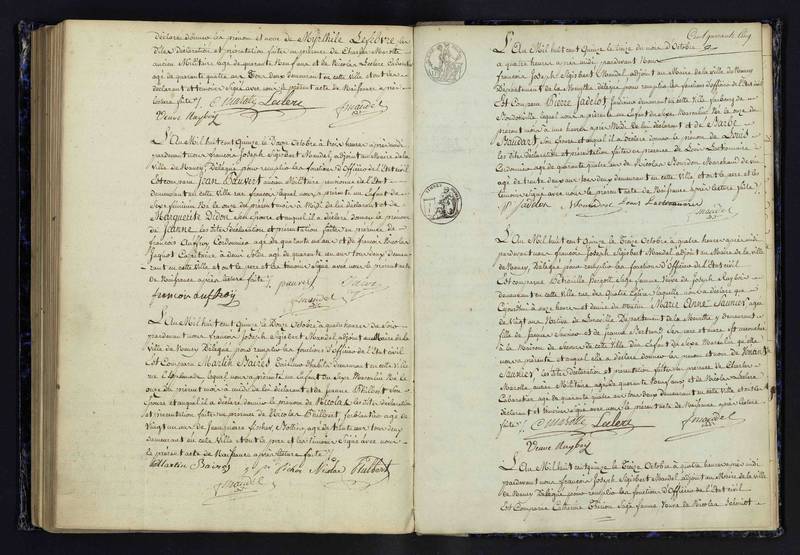 déclaré donner le prénom et nom de Myrthile Lefebvre les
dites déclaration et présentation faites en présence de Charles Marotte
ancien Militaire agé de quarante neuf ans et de Nicolas Leclere Cabaretier
agé de quarante quatre ans Tous deux demeurant en cette ville et ont les
déclarant et témoins signé avec nous le présent acte de Naissance après
lecture faite /.
C Marotte Leclere
Veuve
Smandel
L'An Mil huit cent Quinze le Douze Octobre à trois heures après midi
pardevant nous françois Joseph Sigisbert Mandel, adjoint au Maire de la
Ville de Nancy, Délégué pour remplir les fonctions d'Officier de l'Etat civil
Est comparu Jean Pauvert ancien Militaire
demeurant en cette ville lequel nous a présenté un Enfant du
Sexe féminin Né le onze du présent mois à Midi de lui déclarant et de
Marguerite Didon son Epouse et auquel il a déclaré donner le prénom
de Jeanne, les dites déclaration et présentation faites en présence de
françois Auffroy Cordonnier agé de quarante un ans et de françois Nicolas
Jaquot agé de quarante un ans tous deux demeurant
en cette ville et ont le père et les témoins signé avec nous le présent acte
de Naissance après lecture faite /.
pauvert
françois auffroy
Smandel
L'An Mil huit cent Quinze le Douze Octobre à quatre heures du soir
pardevant nous françois Joseph Sigisbert Mandel adjoint au Maire de la
Ville de Nancy Délégué pour remplir les fonctions d'Officier de l'Etat civil
Est Comparu Martin Bairès demeurant en cette Ville
lequel nous a présenté un Enfant du Sexe Masculin Né le
onze du présent mois à midi de lui déclarant et de Jeanne Philbert son
Epouse et auquel il a déclaré donner le prénom de Nicolas les dites déclaration
et présentation faites en présence de Nicolas Philbert, ferblantier agé de
Vingt un ans de Jean pierre agé de trente ans tous deux
demeurant en cette Ville et ont le père et les témoins Signé avec nous
le présent acte de Naissance après lecture faite /.
Martin Bairès
Nicolas Philbert
Smandel
Cent quarante cinq
L'An Mil huit cent Quinze le treize du mois d'Octobre
à quatre heures après midi pardevant Nous
françois Joseph Sigisbert Mandel, adjoint au Maire de la Ville de Nancy
Département de la Meurthe délégué pour remplir les fonctions d'officier de l'Etat civil
Est Comparu Pierre Jadelot Jardinier demeurant en cette Ville faubourg de
lequel nous a présenté un Enfant du Sexe Masculin Né le onze du
présent mois à une heure après Midi de lui déclarant et de Barbe
Baudart Son Epouse et auquel il a déclaré donner le prénom de Louis
les dites déclaration et présentation faites en présence de Louis
Cordonnier agé de quarante quatre ans de Nicolas Marchand de vin
agé de trente deux ans tous deux demeurant en cette Ville et ont le père et les
témoins signé avec nous le présent acte de Naissance après lecture faite /.
Jadelot
Louis
Smandel
L'An Mil huit cent Quinze le Treize Octobre à quatre heures après midi
pardevant nous françois Joseph Sigisbert Mandel adjoint au Maire de la Ville
de Nancy, Délégué pour remplir les fonctions d'Officier de l'Etat civil
Est comparue Sage femme Veuve de Joseph
demeurant en cette Ville rue des quatre Eglises laquelle nous a déclaré que
à onze heures et demie du matin Marie Anne Saunier agée
de Vingt ans Native de Lunéville Département de la Meurthe y demeurant
fille de Jacques Saunier et de Jeanne ses père et mère est accouchée
à la Maison de Secours de cette Ville d'un Enfant du Sexe Masculin qu'elle
nous a présenté et auquel elle a déclaré donner les prénom et nom de Vincent
Saunier, les dites déclaration et présentation faites en présence de Charles
Marotte ancien Militaire, agé de quarante Neuf ans, et de Nicolas Leclere
Cabaretier agé de quarante quatre ans tous deux demeurant en cette Ville et ont les
déclarant et témoins signé avec nous le présent acte de Naissance après lecture
faite /.
C Marotte Leclere
Smandel
Veuve
L'An Mil huit cent quinze le Treize Octobre à quatre heures après midi
pardevant nous françois Joseph Sigisbert Mandel adjoint au Maire de la Ville
de Nancy Délégué pour remplir les fonctions d'officier de l'Etat civil
Est Comparue Catherine Thirion Sage femme Veuve de Nicolas Schmidt